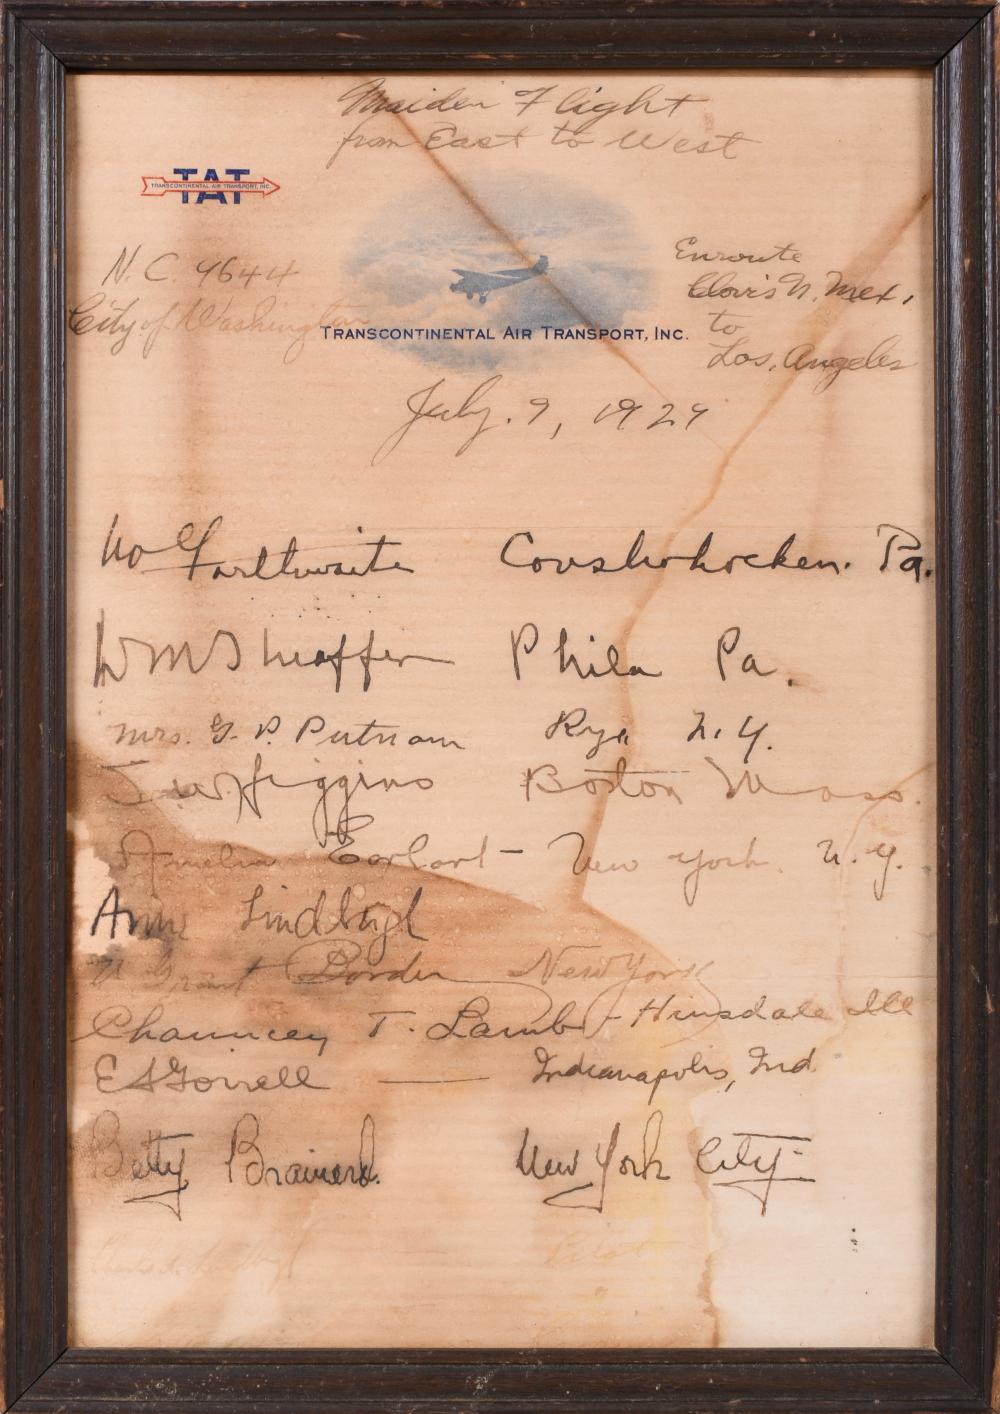 Maiden Flight
from East to West
TAT
TRANSCONTINENTAL AIR TRANSPORT, INC.
N.C. 9644
City of Washington
Enroute
Clovis N. Mex.
to
Los. Angeles
TRANSCONTINENTAL AIR TRANSPORT, INC.
July. 9, 1929
Conshohocken. Pa.
Wm Sheaffer Phila Pa.
Mrs. G. P. Putnam Rye N.Y.
Higgins Boston Mass.
Amelia Earhart - New York N.Y.
Anne Lindbergh
Grant Border New York
Chauncey T. Lamb - Hinsdale Ill
E S Gorrell — Indianapolis, Ind.
Betty Brainerd. New York City-
Pilot